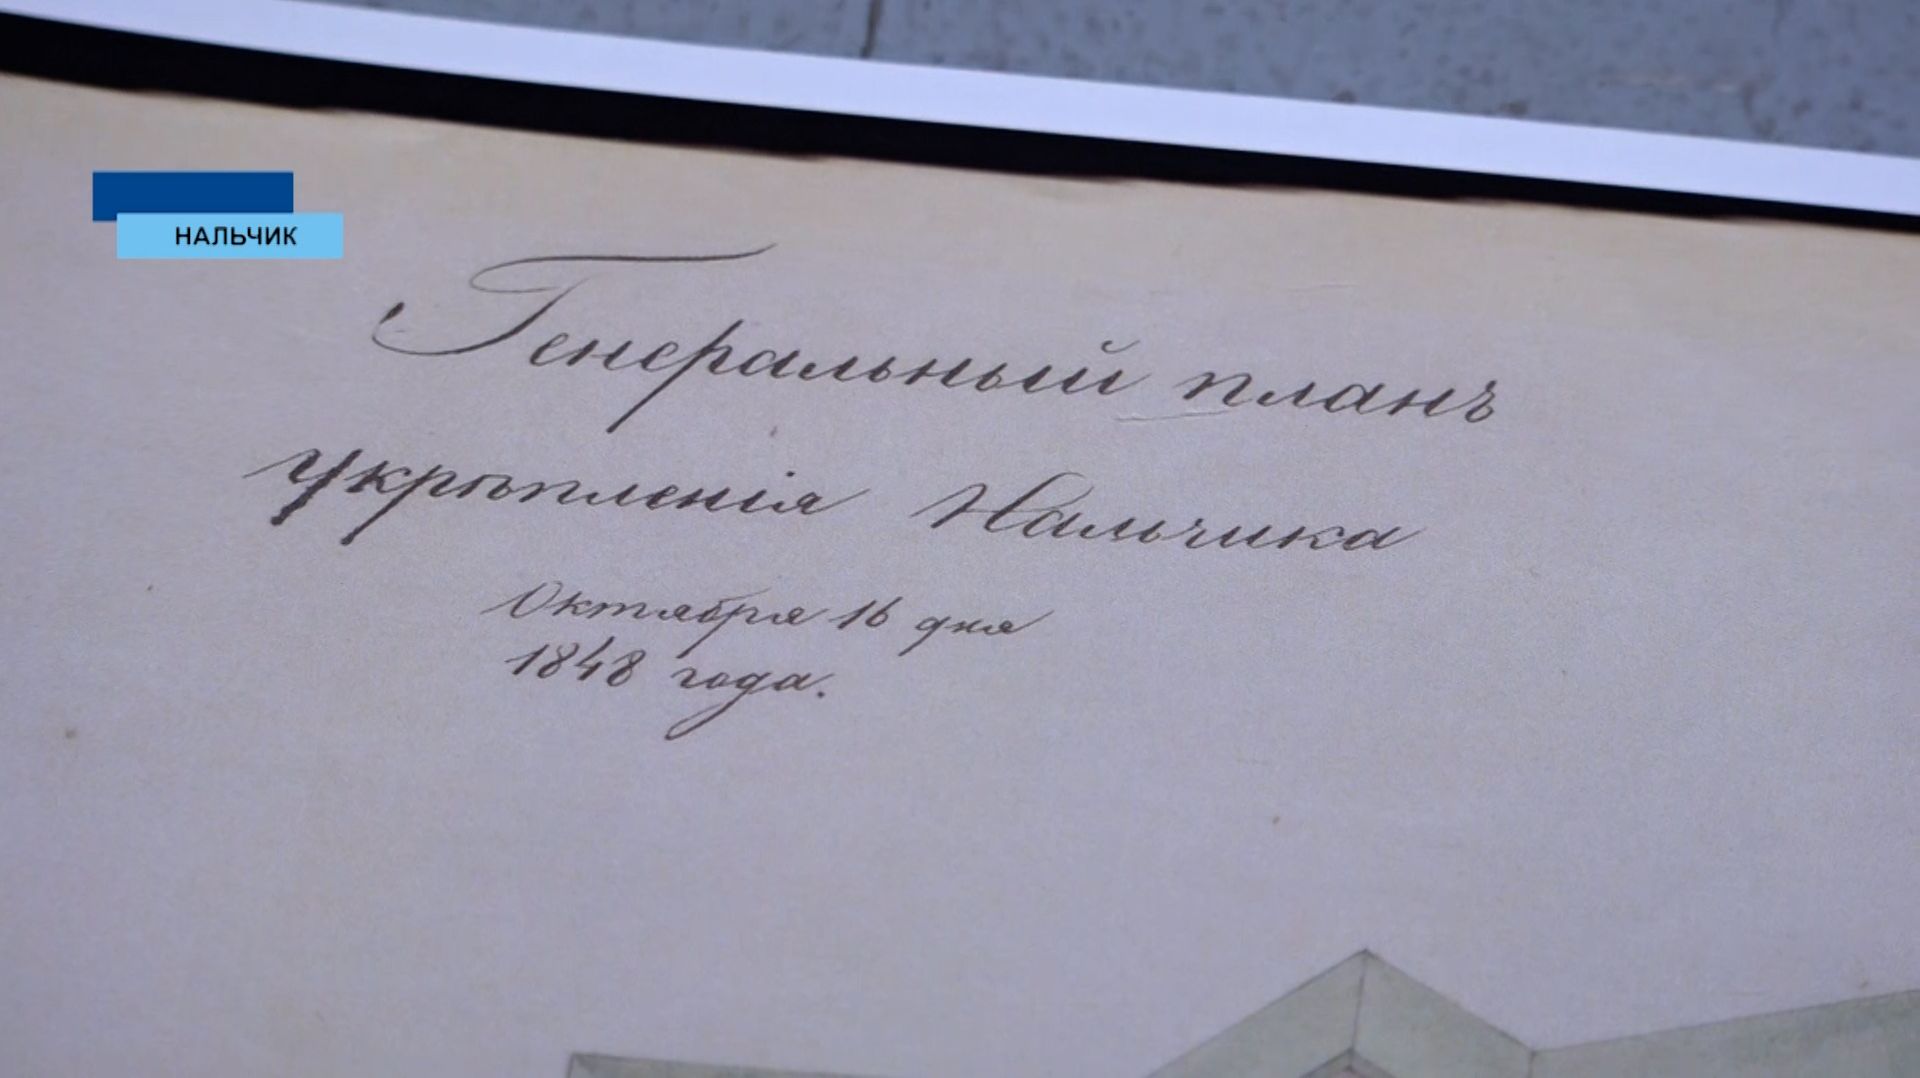 НАЛЬЧИК
Генеральный планъ
укрѣпленія Нальчика
Октября 16 дня
1848 года.